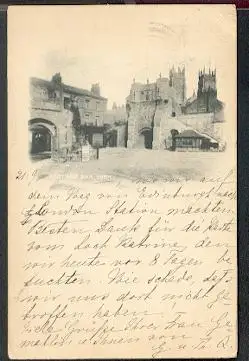 BOOTHAM BAR, YORK
21. 9. wo wir auf
dem Weg von Edinburgh nach
London Station machten.
Besten Dank für die Karte
vom Loch Katrine, den
wir heute vor 8 Tagen be
suchten. Wie schade, daß
wir uns dort nicht ge
troffen haben.
Viele Grüße Ihrer Frau Ge
mahlin u. Ihnen von